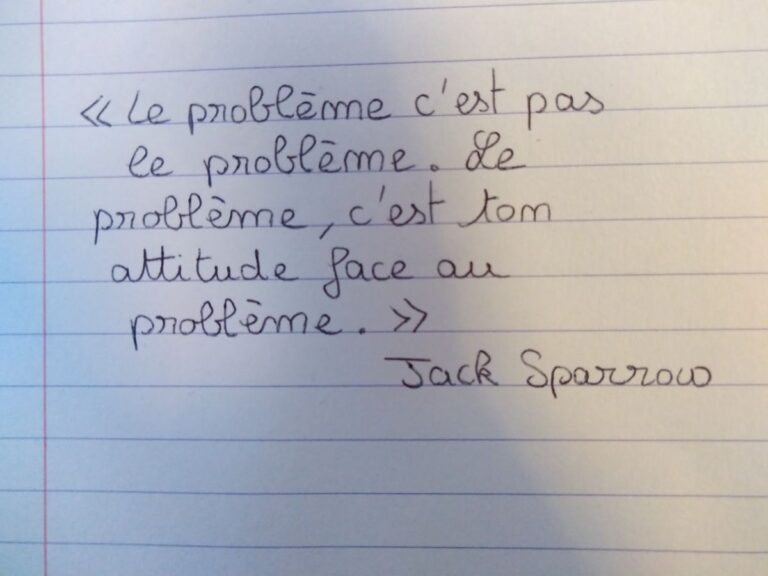 « Le problème c'est pas
le problème. Le
problème, c'est ton
attitude face au
problème. »
Jack Sparrow